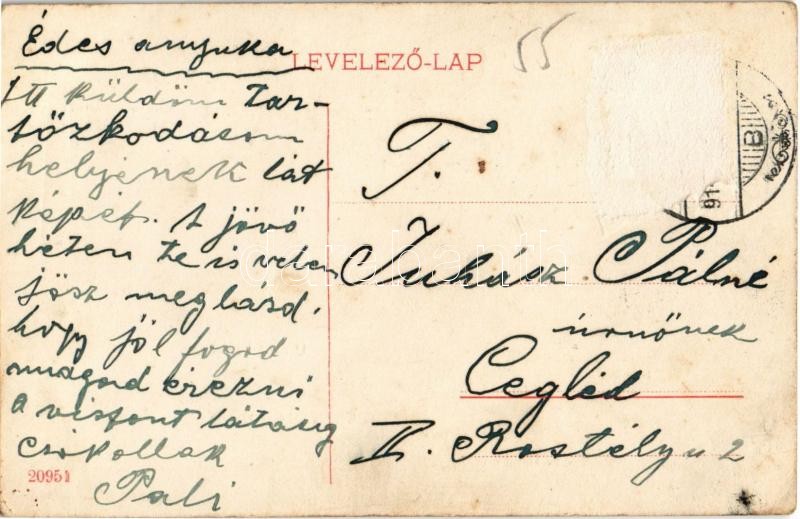 Édes anyuka
LEVELEZŐ-LAP
55
Itt küldöm tar-
tózkodásom
helyének lát
képét. A jövő
héten te is velem
jösz meglásd.
hogy jól fogod
magad érezni
a viszont látásig
csókollak
Pali
20951
T.
Juhász Pálné
úrnőnek
Cegléd
II. Rostély u 2
B
darabanth